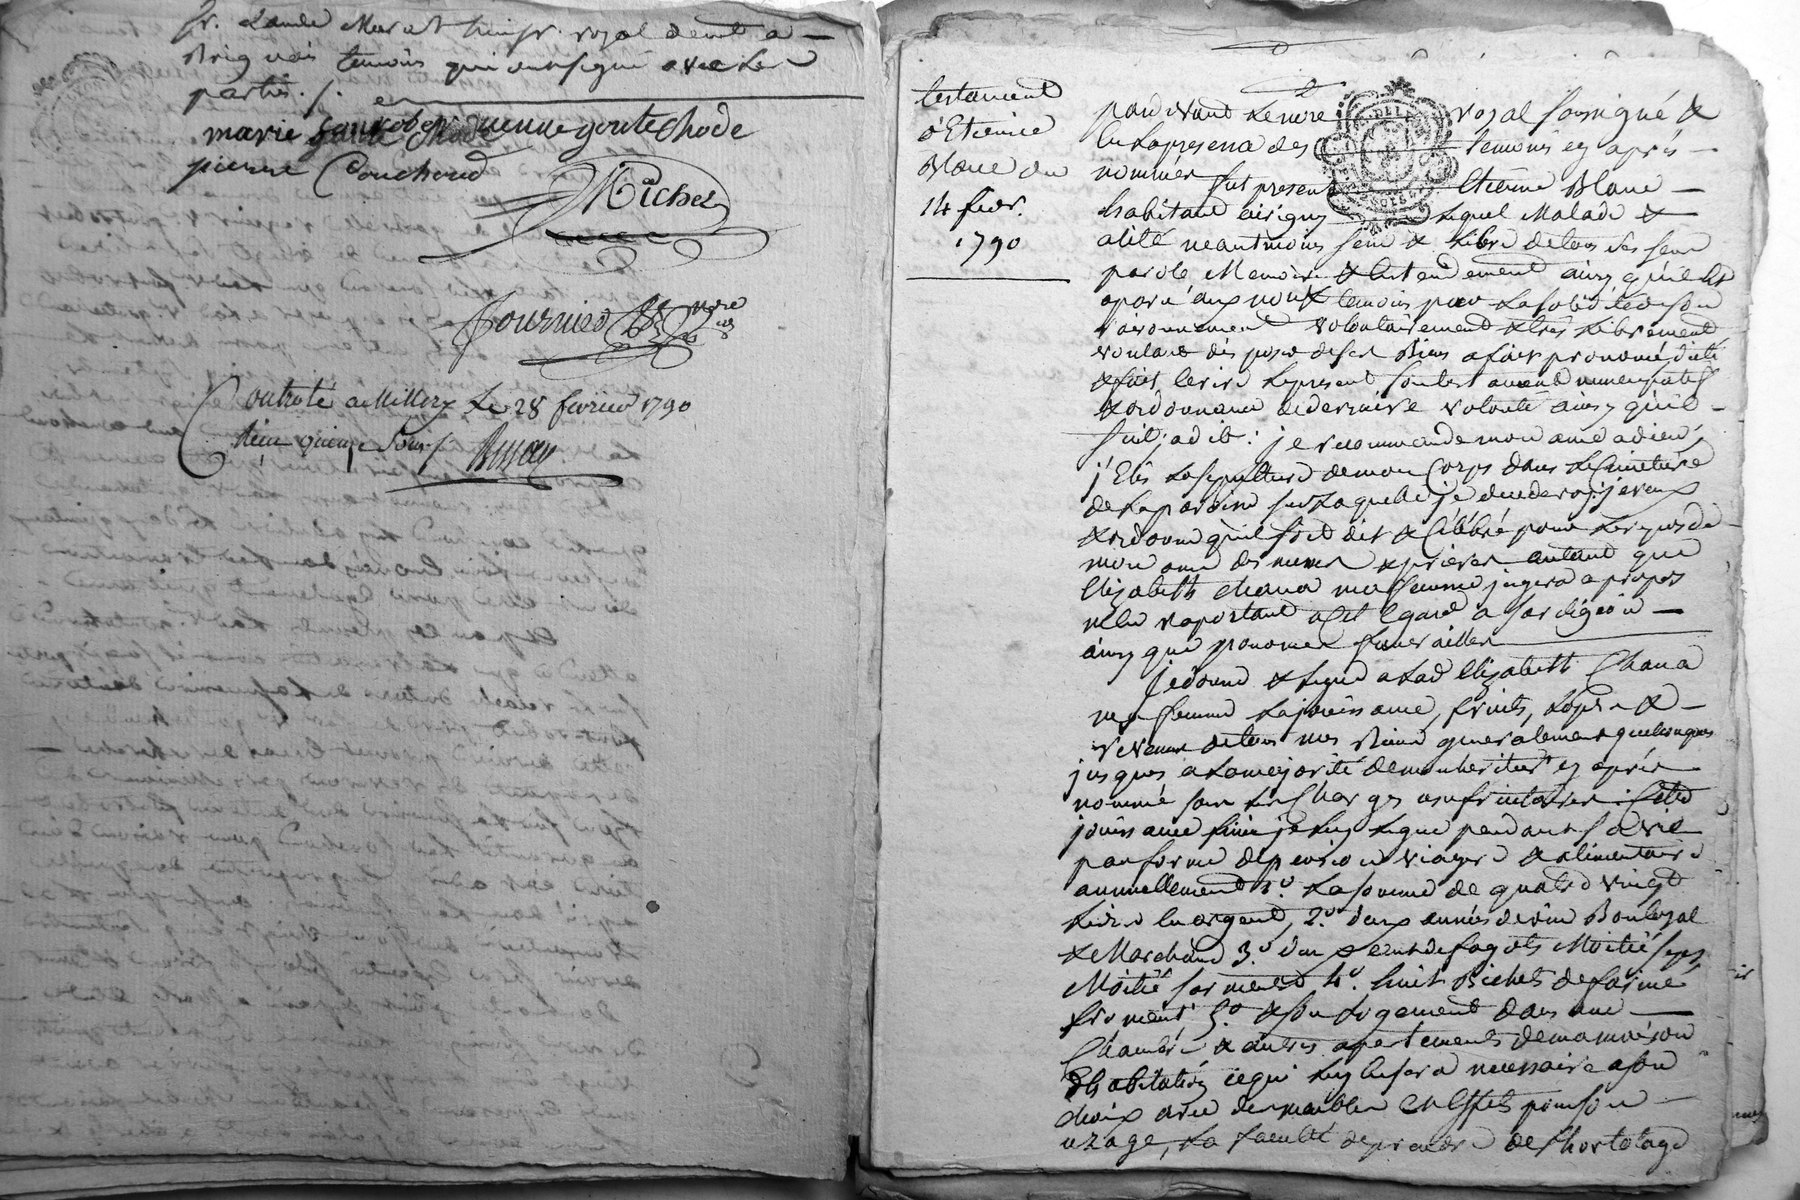 Sr. Claude Murat huissr. royal demt. a
Brignais temoins qui ont signé avec les
parties ./.
marie
pierre Couchoud
Michel
Fournier nore
Controlé a Millery le 28 fevrier 1790
Reçu quinze sous /.
testament
d'Etienne
Blanc du
14 fevr.
1790
pardevant le nore royal soussigné &
en la presence des temoins cy après
nommés fut present Etienne Blanc
habitant a irigny lequel malade &
alité neantmoins sain & libre de tous ses sens
parole memoire & entendement ainsy qu'il est
aparu aux nore & temoins par la solidité de son
raisonnement volontairement & très librement
voulant disposer de ses Biens a fait prononcé dicté
& fait ecrire le present son testament nuncupatif
& ordonnance de derniere volonté ainsy qu'il
suit, a dit : je recommande mon ame a dieu,
j'Elis la sepulture de mon Corps dans le Cimetiere
de la paroisse sur laquelle je decederay : je veux
& ordonne qu'il soit dit & Célébré pour le repos de
mon ame des messes & prieres autant que
Elizabeth Chana ma femme jugera a propos
m'en raportant a cet egard a sa religion
ainsy que pour mes funerailles
je donne & legue a lad. Elizabeth Chana
ma femme la jouissance, fruits, &
revenus de tous mes Biens generalement quelconques
jusques a la majorité de mon heritier cy après
nommé sous les Charges usufruitaires : Cette
jouissance finie je luy legue pendant sa vie
par forme de pension viagere & alimentaire
annuellement 1°. la somme de quatre vingt
livres en argent, 2°. deux années de vin Bon loyal
& Marchand 3°. deux cent de fagots Moitié
Moitié sarments 4°. huit Bichets de farine
froment 5°. & son logement dans une
Chambre & autres apartements de ma maison
d'habitation ce qui luy en sera necessaire a son
choix avec des meubles et effets pour son
uzage, la faculté de prendre de l'hortolage